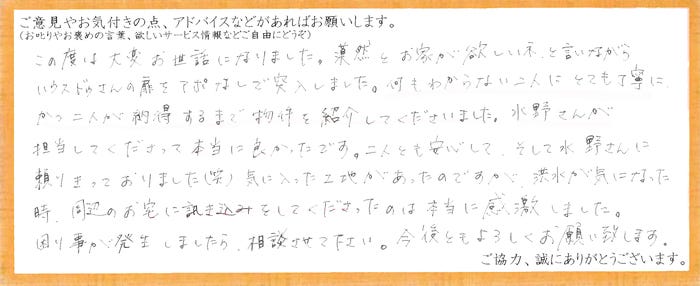 ご意見やお気付きの点、アドバイスなどがあればお願いします。
(お叱りやお褒めの言葉、欲しいサービス情報などご自由にどうぞ)
この度は大変お世話になりました。漠然とお家が欲しいネ、と言いながら
ハウスドゥさんの扉をアポなしで突入しました。何もわからない二人にとても丁寧に、
かつ二人が納得するまで物件を紹介してくださいました。水野さんが
担当してくださって本当に良かったです。二人とも安心して、そして水野さんに
頼りきっておりました(笑) 気に入った土地があったのですが、洪水が気になった
時、周辺のお宅に訊き込みをしてくださったのは本当に感激しました。
困り事が発生しましたら、相談させて下さい。今後ともよろしくお願い致します。
ご協力、誠にありがとうございます。